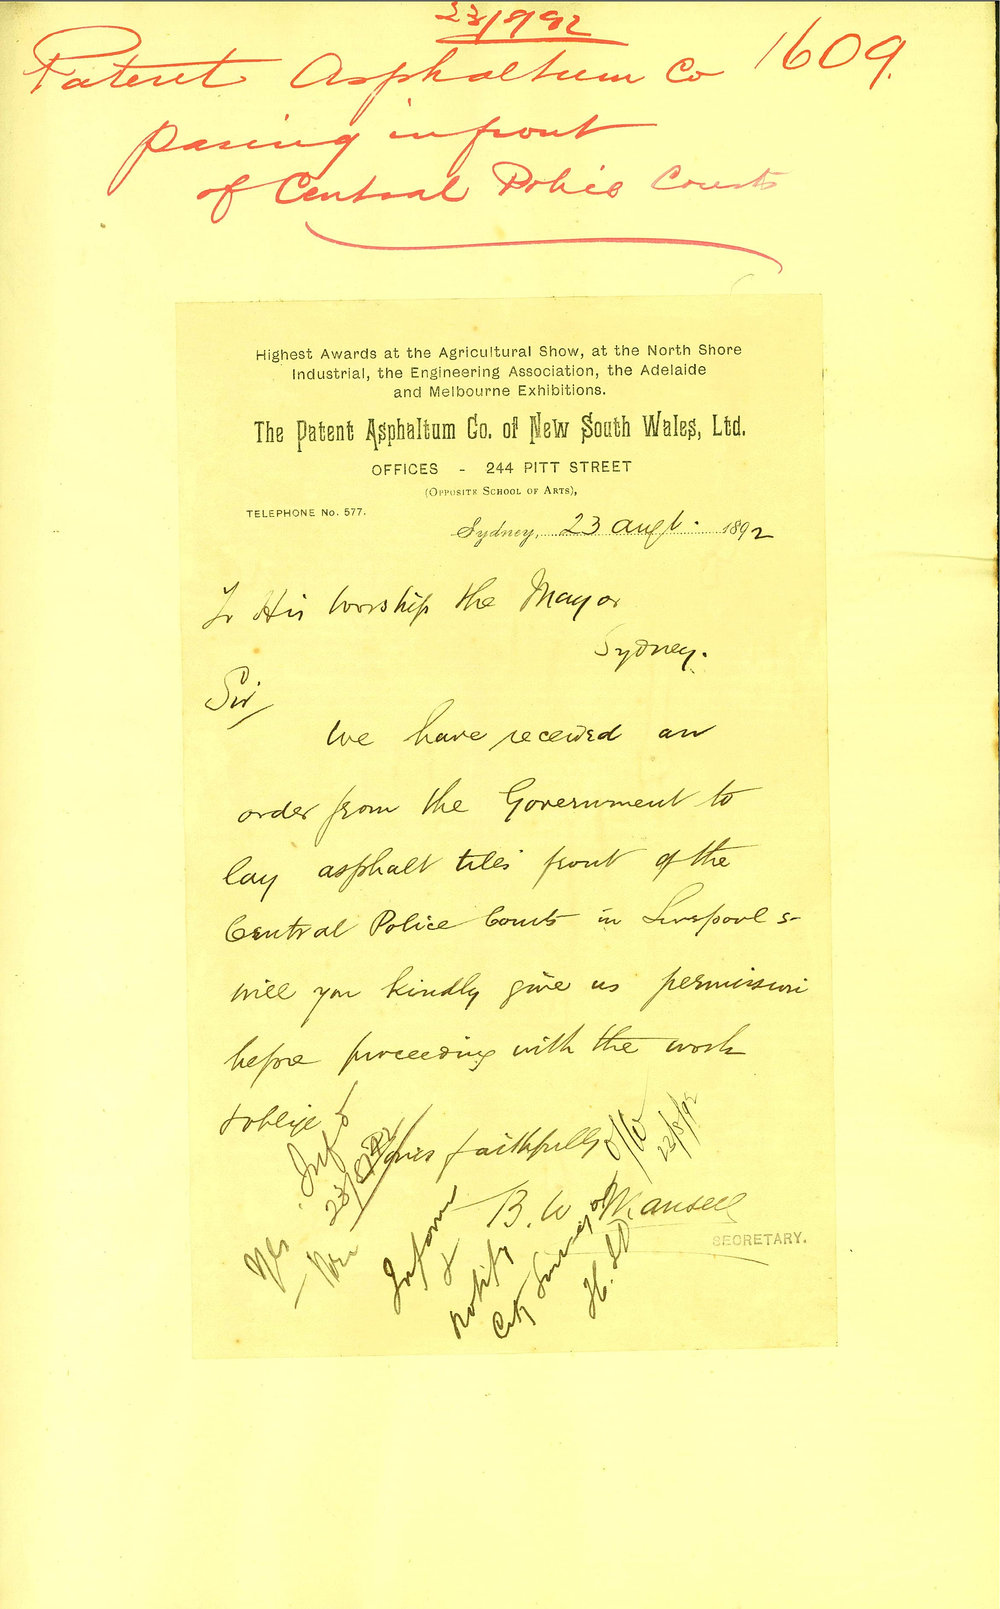 23/8/92
Patent Asphaltum Co 1609.
paving in front
of Central Police Courts
Highest Awards at the Agricultural Show, at the North Shore
Industrial, the Engineering Association, the Adelaide
and Melbourne Exhibitions.
The Patent Asphaltum Co. of New South Wales, Ltd.
OFFICES - 244 PITT STREET
(Opposite School of Arts),
TELEPHONE No. 577.
Sydney, 23 Augt. 1892
To His Worship the Mayor
Sydney.
Sir
We have received an
order from the Government to
lay asphalt tiles front of the
Central Police Courts in Liverpool S-
will you kindly give us permission
before proceeding with the work
& oblige
Yours faithfully
B. W Mansell
SECRETARY.
Yes
23/8/92
Inform
&
Notify
City Surveyor
23/8/92